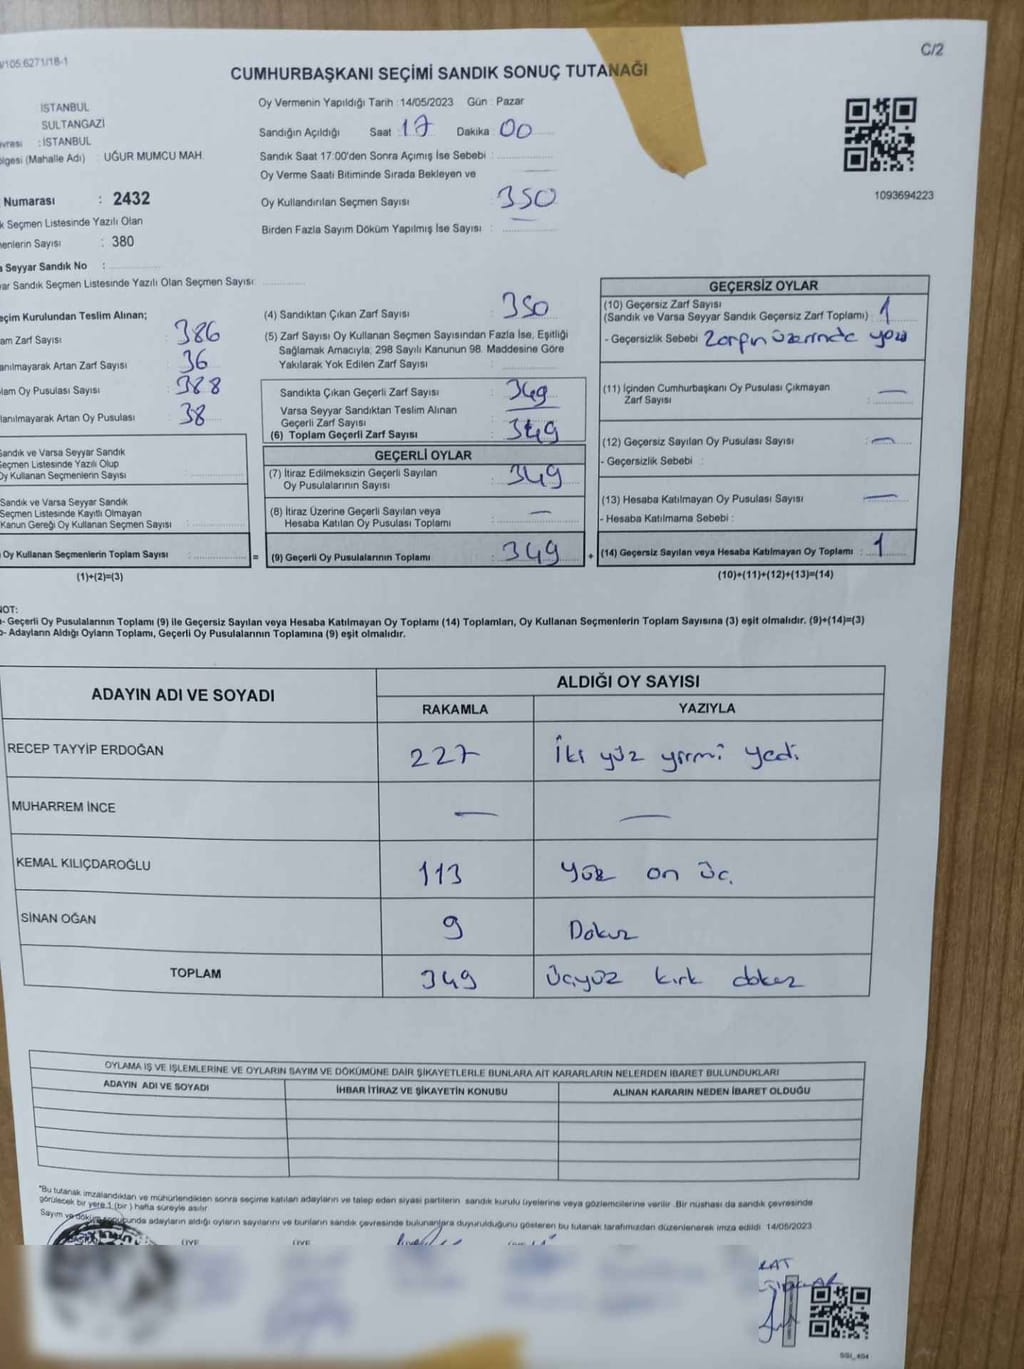 /105.6271/18-1
C/2
CUMHURBAŞKANI SEÇİMİ SANDIK SONUÇ TUTANAĞI
İSTANBUL
SULTANGAZİ
: İSTANBUL
(Mahalle Adı) : UĞUR MUMCU MAH.
Numarası : 2432
Seçmen Listesinde Yazılı Olan
Sayısı : 380
Seyyar Sandık No :
Sandık Seçmen Listesinde Yazılı Olan Seçmen Sayısı:
Oy Vermenin Yapıldığı Tarih : 14/05/2023 Gün : Pazar
Sandığın Açıldığı Saat 17 Dakika 00
Sandık Saat 17:00'den Sonra Açımış İse Sebebi :
Oy Verme Saati Bitiminde Sırada Bekleyen ve
Oy Kullandırılan Seçmen Sayısı : 350
Birden Fazla Sayım Döküm Yapılmış İse Sayısı :
1093694223
Kurulundan Teslim Alınan;
Zarf Sayısı : 386
Artan Zarf Sayısı : 36
Oy Pusulası Sayısı : 388
Artan Oy Pusulası : 38
Sandık ve Varsa Seyyar Sandık
Seçmen Listesinde Yazılı Olup
Oy Kullanan Seçmenlerin Sayısı :
Sandık ve Varsa Seyyar Sandık
Seçmen Listesinde Kayıtlı Olmayan
Kanun Gereği Oy Kullanan Seçmen Sayısı :
Oy Kullanan Seçmenlerin Toplam Sayısı :
(1)+(2)=(3)
(4) Sandıktan Çıkan Zarf Sayısı : 350
(5) Zarf Sayısı Oy Kullanan Seçmen Sayısından Fazla İse, Eşitliği
Sağlamak Amacıyla; 298 Sayılı Kanunun 98. Maddesine Göre
Yakılarak Yok Edilen Zarf Sayısı :
Sandıkta Çıkan Geçerli Zarf Sayısı : 349
Varsa Seyyar Sandıktan Teslim Alınan
Geçerli Zarf Sayısı :
(6) Toplam Geçerli Zarf Sayısı : 349
GEÇERLİ OYLAR
(7) İtiraz Edilmeksizin Geçerli Sayılan
Oy Pusulalarının Sayısı : 349
(8) İtiraz Üzerine Geçerli Sayılan veya
Hesaba Katılan Oy Pusulası Toplamı : —
= (9) Geçerli Oy Pusulalarının Toplamı : 349 +
GEÇERSİZ OYLAR
(10) Geçersiz Zarf Sayısı
(Sandık ve Varsa Seyyar Sandık Geçersiz Zarf Toplamı) : 1
- Geçersizlik Sebebi : Zarfın üzerinde yazı
(11) İçinden Cumhurbaşkanı Oy Pusulası Çıkmayan
Zarf Sayısı : —
(12) Geçersiz Sayılan Oy Pusulası Sayısı : —
- Geçersizlik Sebebi :
(13) Hesaba Katılmayan Oy Pusulası Sayısı : —
- Hesaba Katılmama Sebebi :
(14) Geçersiz Sayılan veya Hesaba Katılmayan Oy Toplamı : 1
(10)+(11)+(12)+(13)=(14)
NOT:
- Geçerli Oy Pusulalarının Toplamı (9) ile Geçersiz Sayılan veya Hesaba Katılmayan Oy Toplamı (14) Toplamları, Oy Kullanan Seçmenlerin Toplam Sayısına (3) eşit olmalıdır. (9)+(14)=(3)
- Adayların Aldığı Oyların Toplamı, Geçerli Oy Pusulalarının Toplamına (9) eşit olmalıdır.
ADAYIN ADI VE SOYADI
ALDIĞI OY SAYISI
RAKAMLA YAZIYLA
RECEP TAYYİP ERDOĞAN 227 İki yüz yirmi yedi
MUHARREM İNCE — —
KEMAL KILIÇDAROĞLU 113 Yüz on üç.
SİNAN OĞAN 9 Dokuz
TOPLAM 349 Üçyüz kırk dokuz
OYLAMA İŞ VE İŞLEMLERİNE VE OYLARIN SAYIM VE DÖKÜMÜNE DAİR ŞİKAYETLERLE BUNLARA AİT KARARLARIN NELERDEN İBARET BULUNDUKLARI
ADAYIN ADI VE SOYADI İHBAR İTİRAZ VE ŞİKAYETİN KONUSU ALINAN KARARIN NEDEN İBARET OLDUĞU
*Bu tutanak imzalandıktan ve mühürlendikten sonra seçime katılan adayların ve talep eden siyasi partilerin sandık kurulu üyelerine veya gözlemcilerine verilir. Bir nüshası da sandık çevresinde
görülecek bir yere 1 (bir) hafta süreyle asılır.
Sayım ve döküm sonucunda adayların aldığı oyların sayılarını ve bunların sandık çevresinde bulunanlara duyurulduğunu gösteren bu tutanak tarafımızdan düzenlenerek imza edildi. 14/05/2023
ÜYE ÜYE